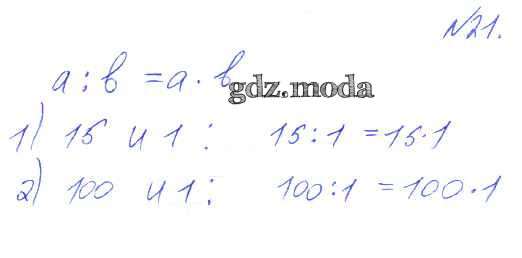 №21.
a : b = a · b
gdz.moda
1) 15 и 1 : 15 : 1 = 15 · 1
2) 100 и 1 : 100 : 1 = 100 · 1